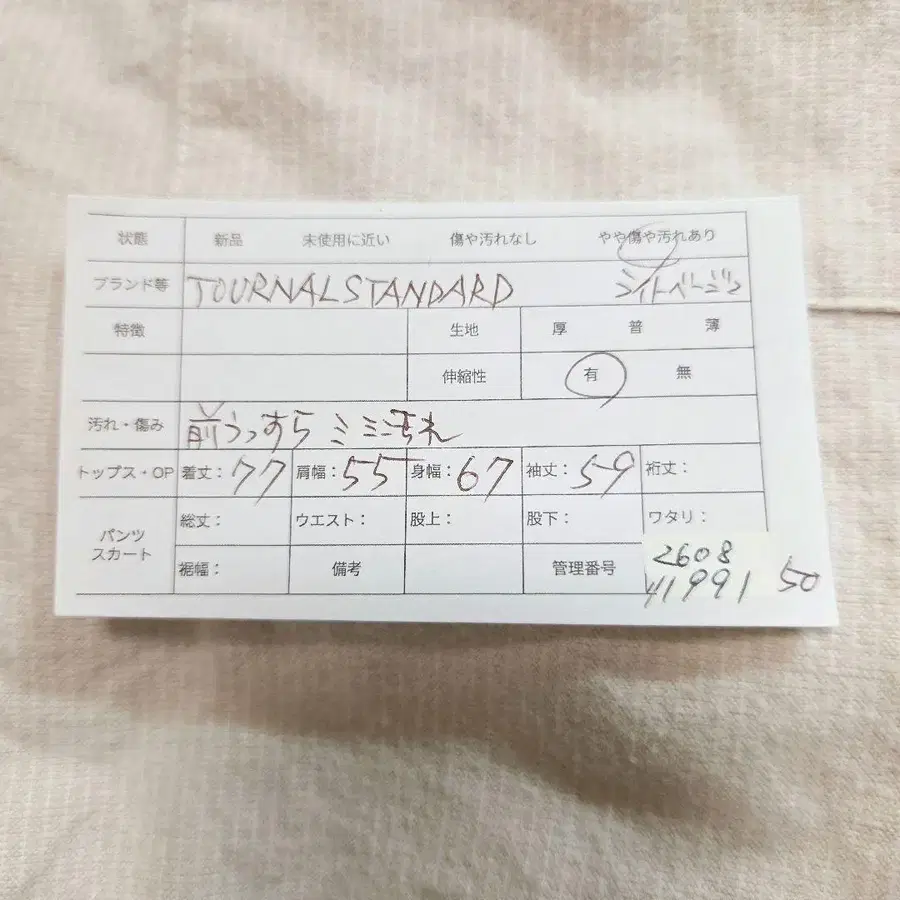 状態 新品 未使用に近い 傷や汚れなし やや傷や汚れあり
ブランド等 JOURNALSTANDARD
特徴 生地 厚 普 薄
伸縮性 有 無
汚れ・傷み 前うっすら ミミ汚れ
トップス・OP 着丈:77 肩幅:55 身幅:67 袖丈:59 裄丈:
パンツ スカート 総丈: ウエスト: 股上: 股下: ワタリ:
裾幅: 備考 管理番号 2608
41991 50